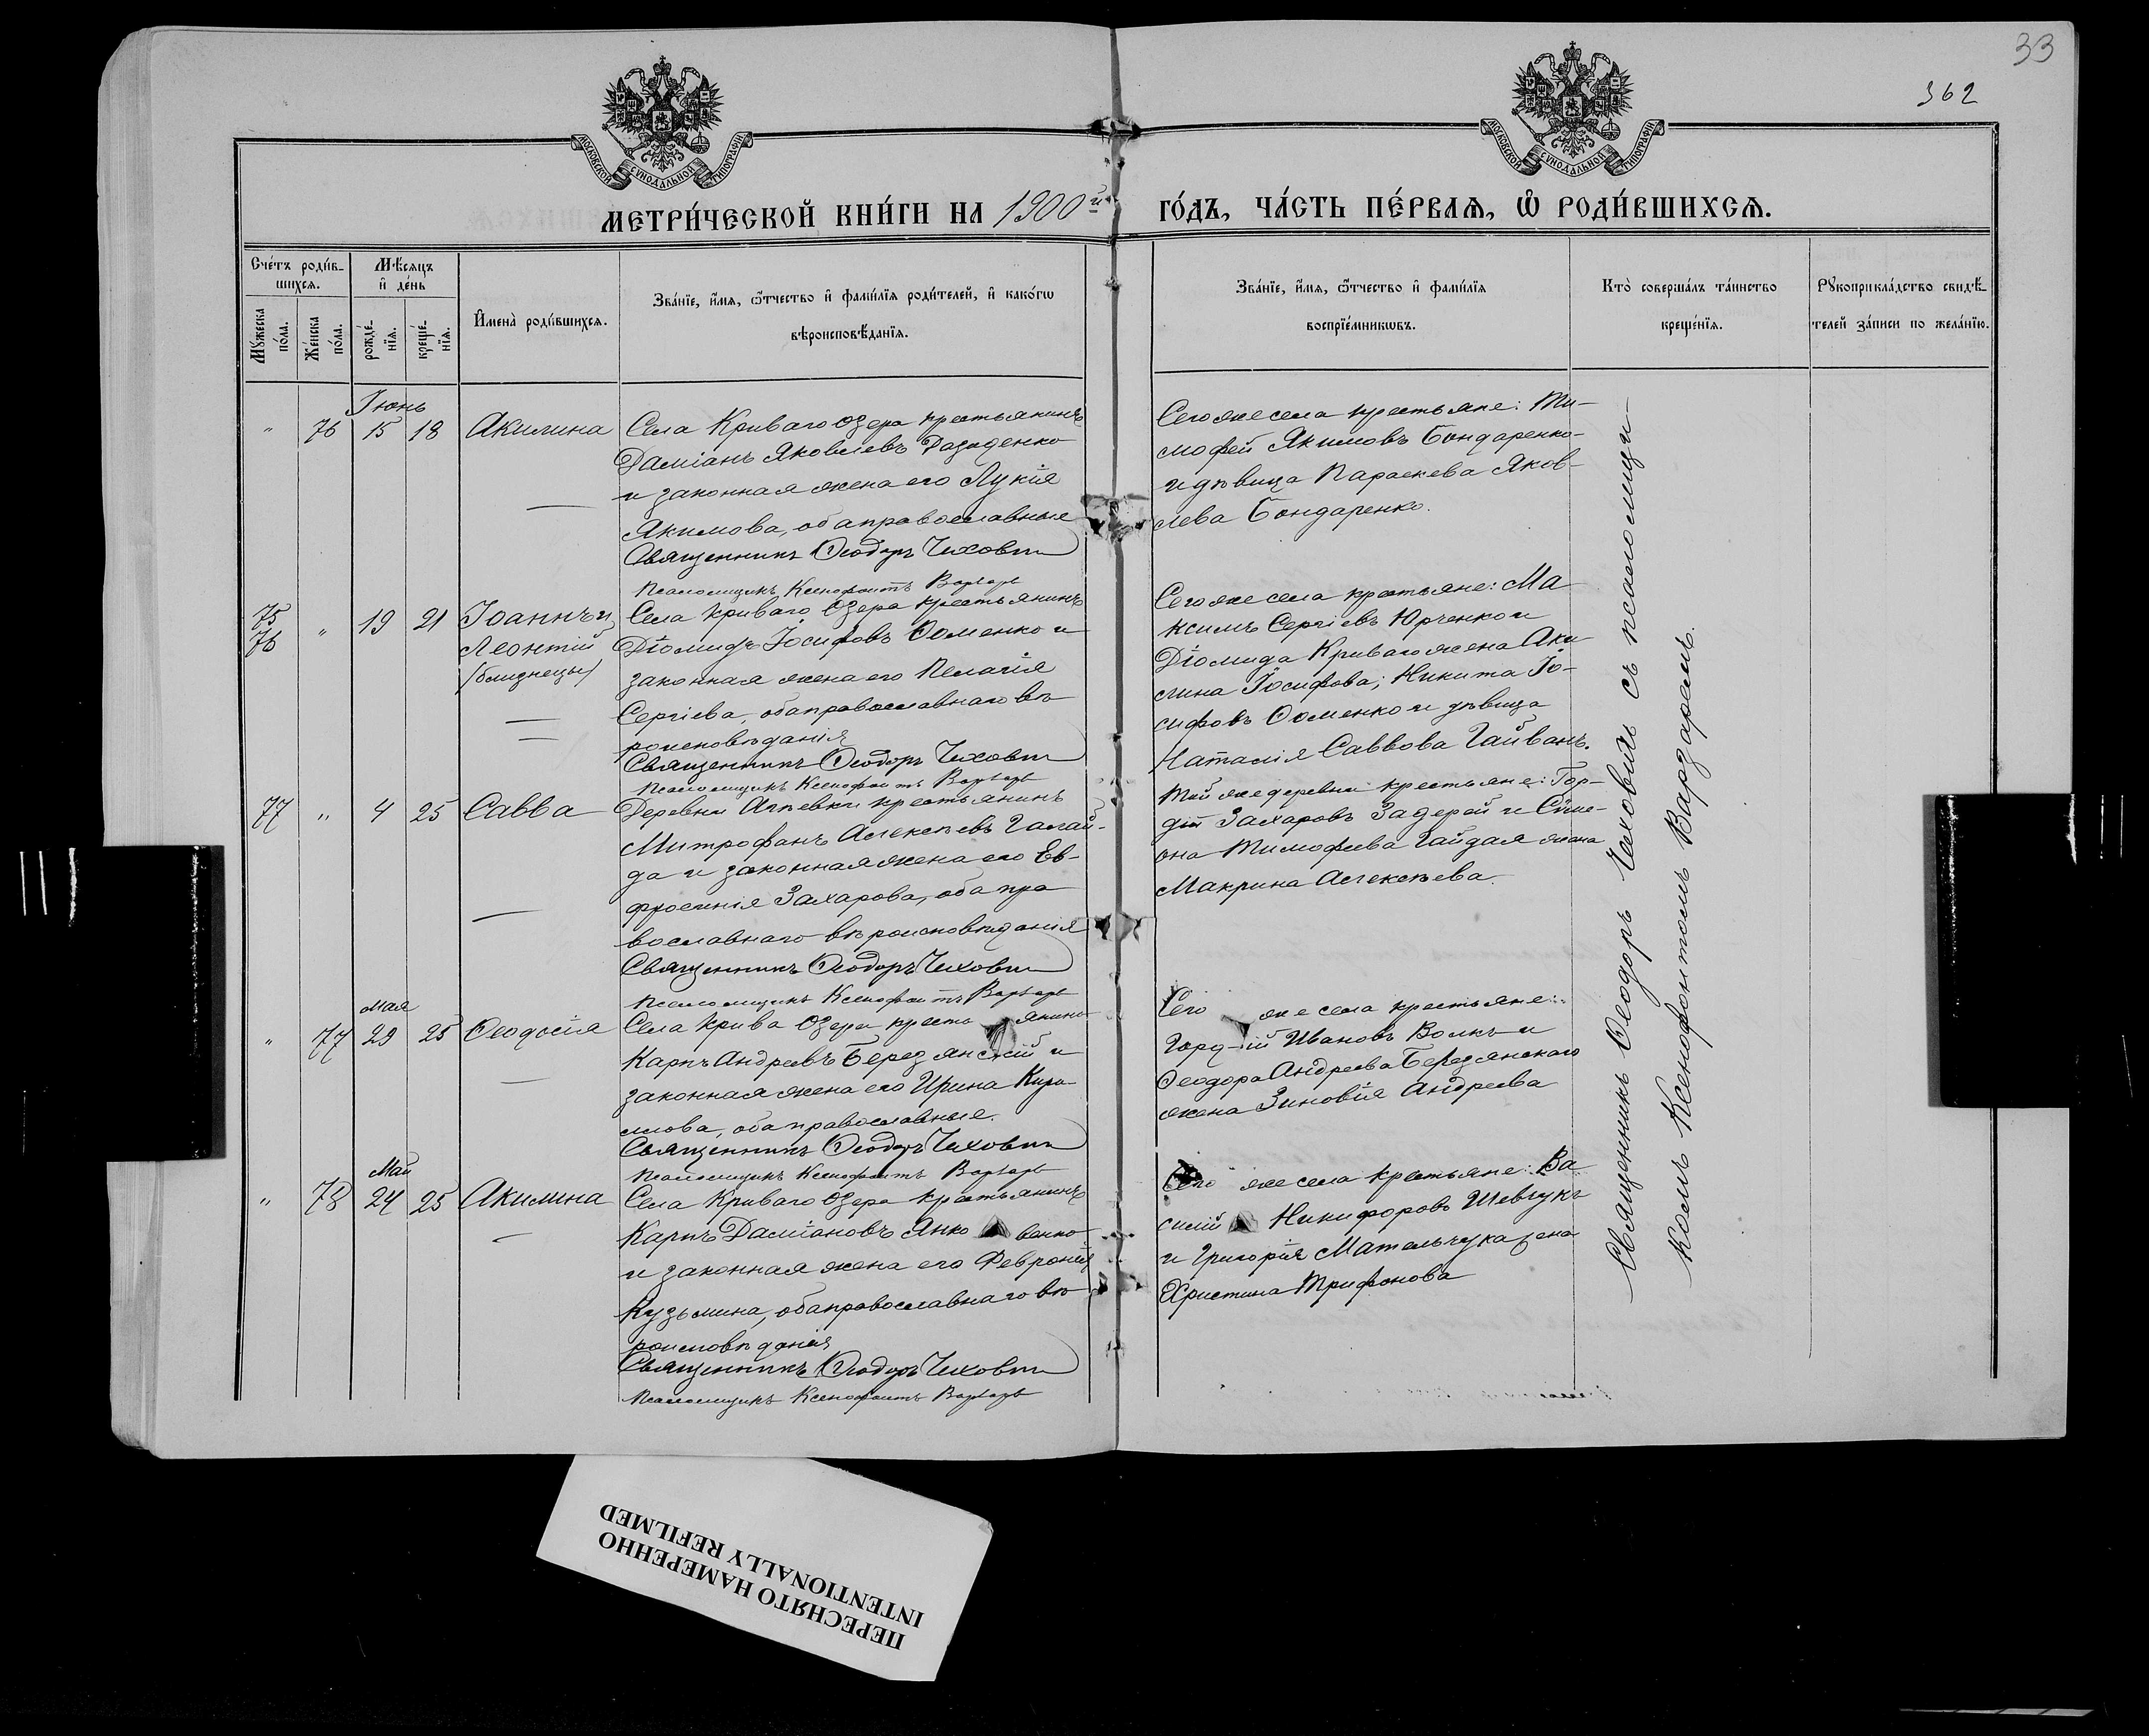 33
362
МОСКОВСКОЙ СУНОДАЛЬНОЙ ТИПОГРАФІИ
МОСКОВСКОЙ СУНОДАЛЬНОЙ ТИПОГРАФІИ
МЕТРИ́ЧЕСКОЙ КНИ́ГИ НА 1900й
ГО́ДЪ, ЧА́СТЬ ПЕ́РВАѦ, Ѡ҆ РОДИ́ВШИХСѦ.
Сче́тъ роди́в-
шихсѧ.
Мꙋ́жеска по́ла.
Же́нска по́ла.
Мѣ́сѧцъ
и҆ де́нь
рожде́-
нїѧ.
креще́-
нїѧ.
И҆мена̀ роди́вшихсѧ.
Зва́нїе, и҆́мѧ, ѻ҆́тчество и҆ фами́лїѧ роди́телей, и҆ како́гѡ
вѣроисповѣ́данїѧ.
Зва́нїе, и҆́мѧ, ѻ҆́тчество и҆ фами́лїѧ
воспрїе́мникѡвъ.
Кто̀ соверша́лъ та́инство
креще́нїѧ.
Рꙋкоприкла́дство свидѣ́-
телей за́писи по жела́нїю.
Іюнь
" 76 15 18 Акилина
Села Криваго Озера крестьянинъ
Даміанъ Яковлевъ
и законная жена его Лукія
Якимова, оба православные
Священникъ Ѳеодоръ Чеховичъ
Псаломщикъ Ксенофонтъ Варзарь
Сего же села крестьяне: Ти-
мофей Якимовъ Бондаренко
и дѣвица Параскева Яков-
лева Бондаренко.
75
76 " 19 21 Іоаннъ и
Леонтій
/близнецы/
Села Криваго Озера крестьянинъ
Діомидъ Іосифовъ Ѳоменко и
законная жена его Пелагія
Сергіева, оба православнаго вѣ
роисповѣданія
Священникъ Ѳеодоръ Чеховичъ
Псаломщикъ Ксенофонтъ Варзарь
Сего же села крестьяне: Ма
ксимъ Сергіевъ Юрченко и
Діомида Криваго жена Аки
лина Іосифова; Никита Іо-
сифовъ Ѳоменко и дѣвица
Наталія Саввова Гайванъ.
77 " 4 25 Савва
Деревни крестьянинъ
Митрофанъ Алексѣевъ Галай-
да и законная жена его Ев-
фросинія Захарова, оба пра
вославнаго вѣроисповѣданія
Священникъ Ѳеодоръ Чеховичъ
Псаломщикъ Ксенофонтъ Варзарь
Той же деревни крестьяне: Гор-
дій Захаровъ Задерей и Симе-
она Тимофеева Гайдая жена
Макрина Алексѣева.
Мая
" 77 29 25 Ѳеодосія
Села Крива Озера кресть янинъ
Карпъ Андреевъ Березянскій и
законная жена его Ирина Кири
лова, оба православные.
Священникъ Ѳеодоръ Чеховичъ
Псаломщикъ Ксенофонтъ Варзарь
Сего же села крестьяне:
Горд-ій Ивановъ Волкъ и
Ѳеодора Андреева Березянскаго
жена Зиновія Андреева
Май
" 78 24 25 Акилина
Села Криваго Озера крестьянинъ
Карпъ Даміановъ Янко венко
и законная жена его Февронія
Кузьмина, оба православнаго вѣ
роисповѣданія
Священникъ Ѳеодоръ Чеховичъ
Псаломщикъ Ксенофонтъ Варзарь
Сего же села крестьяне: Ва
силій Никифоровъ Шевчукъ
и Григорія Мательчука жена
Христина Трифонова
Священникъ Ѳеодоръ Чеховичъ съ псаломщи-
комъ Ксенофонтомъ Варзаремъ.
ПЕРЕСНЯТО НАМЕРЕННО
INTENTIONALLY REFILMED